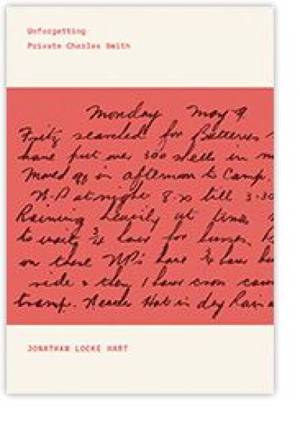 Unforgetting
Private Charles Smith
Monday May 9
Fritz searched for Batteries
have put over 300 shells in
Moved qq in afternoon to Camp.
W.P at night 8.30 till 3-30
Raining heavily at times
to wait 3/4 hour for
on these WP's have
ride & they have
tramp. Header Hot in day Rain
JONATHAN LOCKE HART